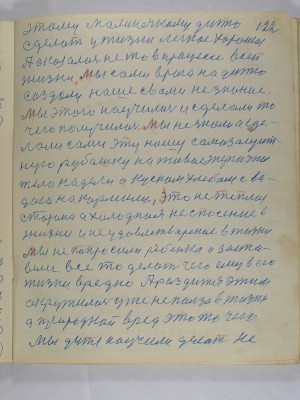 этому маленькому дитю 122
сделать у жизни легкое хорошее
А оказался не то в процессе всей
жизни, Мы сами врага на дитя
создали наше с вами не знание.
Мы этого научились и сделали то
чего получилось Мы не знали а сде-
лали сами эту нашу самозащит-
ную рубашку на живое энергичное
тело надели а куском хлебом с во-
дой накормили, Это не теплая
сторона а холодная не спасение в
жизни а не удовлетворение в жизни
Мы не попросили ребенка а заста-
вили все то делать чего ему в его
жизни вредно А раз дитя этим
окружился уже не польза в жизни
а природной вред это то чего
Мы дитя научили делать не